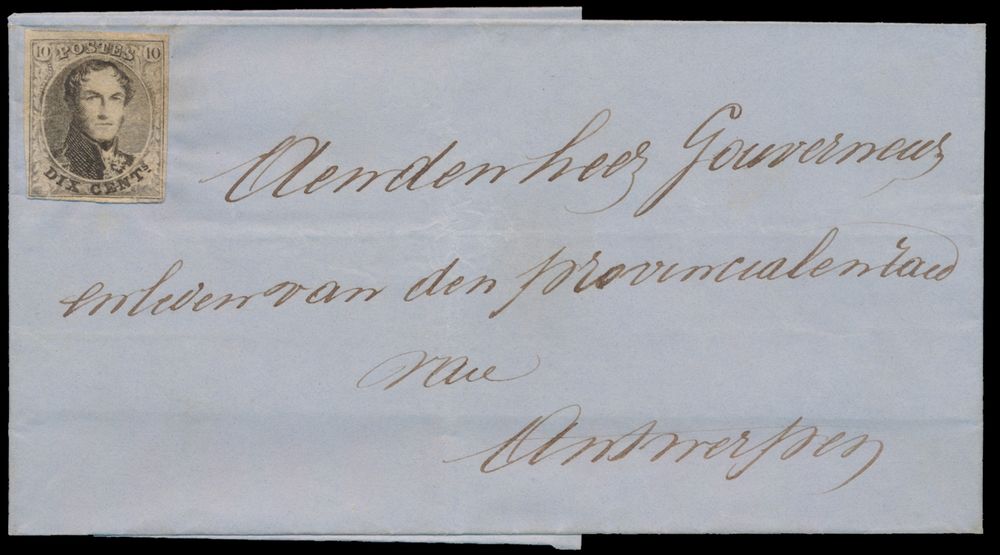 10 POSTES 10
DIX CENTS
Aendenheer Gouverneur
enleden van den provincialenraed
van
Antwerpen